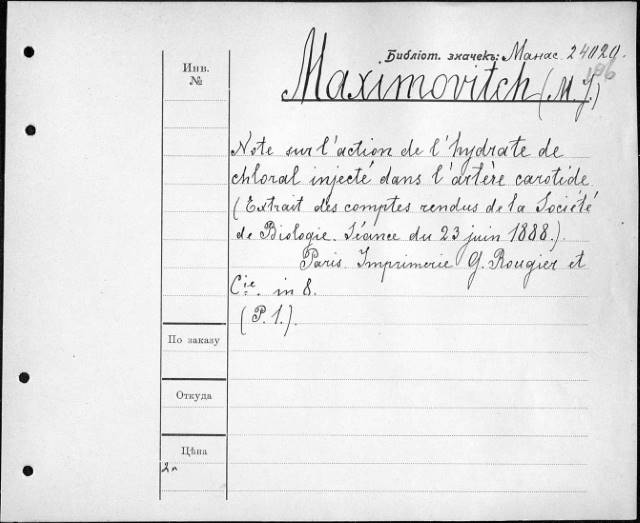 Библіот. значекъ: Манас. 24029.
Инв.
№
Maximovitch (M. J.)
Note sur l'action de l'hydrate de
chloral injecté dans l'artère carotide.
(Extrait des comptes rendus de la Société
de Biologie. Séance du 23 juin 1888.).
Paris. Imprimerie G. Rougier et
Cie. in 8.
(P. 1.).
По заказу
Откуда
Цѣна